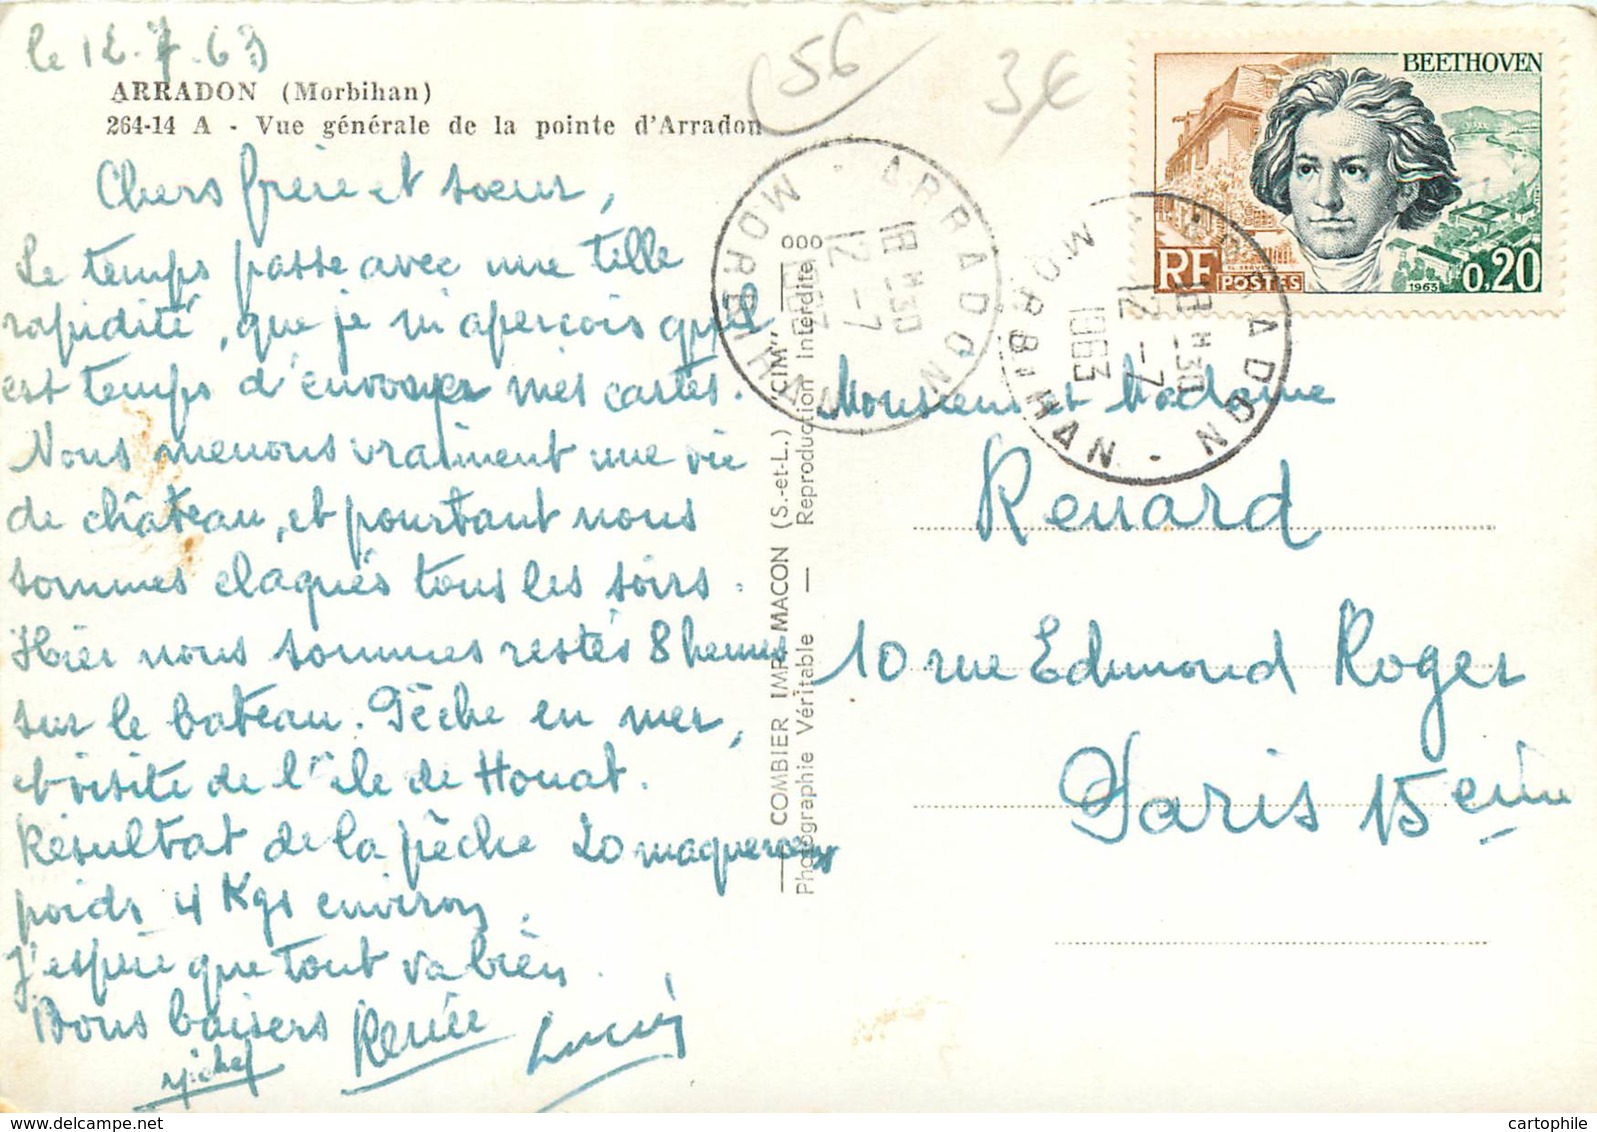 le 12.7.63
56
3€
ARRADON (Morbihan)
264-14 A - Vue générale de la pointe d'Arradon
Chers frère et sœur,
Le temps passe avec une telle
rapidité, que je m'aperçois qu'il
est temps d'envoyer mes cartes.
Nous menons vraiment une vie
de château, et pourtant nous
sommes claqués tous les soirs.
Hier nous sommes restés 8 heures
sur le bateau. Pêche en mer,
et visite de l'île de Houat.
Résultat de la pêche 20 maquereaux
poids 4 Kgs environ.
J'espère que tout va bien.
Bons baisers Renée Lucien
Michel
COMBIER IMP. MACON (S.-et-L.) "CIM"
Photographie Véritable — Reproduction Interdite 000
ARRADON
18H-30
12-7
1963
MORBIHAN
BEETHOVEN
RF POSTES 1963 0,20
ARRADON
18H-30
12-7
1963
MORBIHAN
Monsieur et Madame
Renard
10 rue Edmond Roger
Paris 15eme
cartophile.com